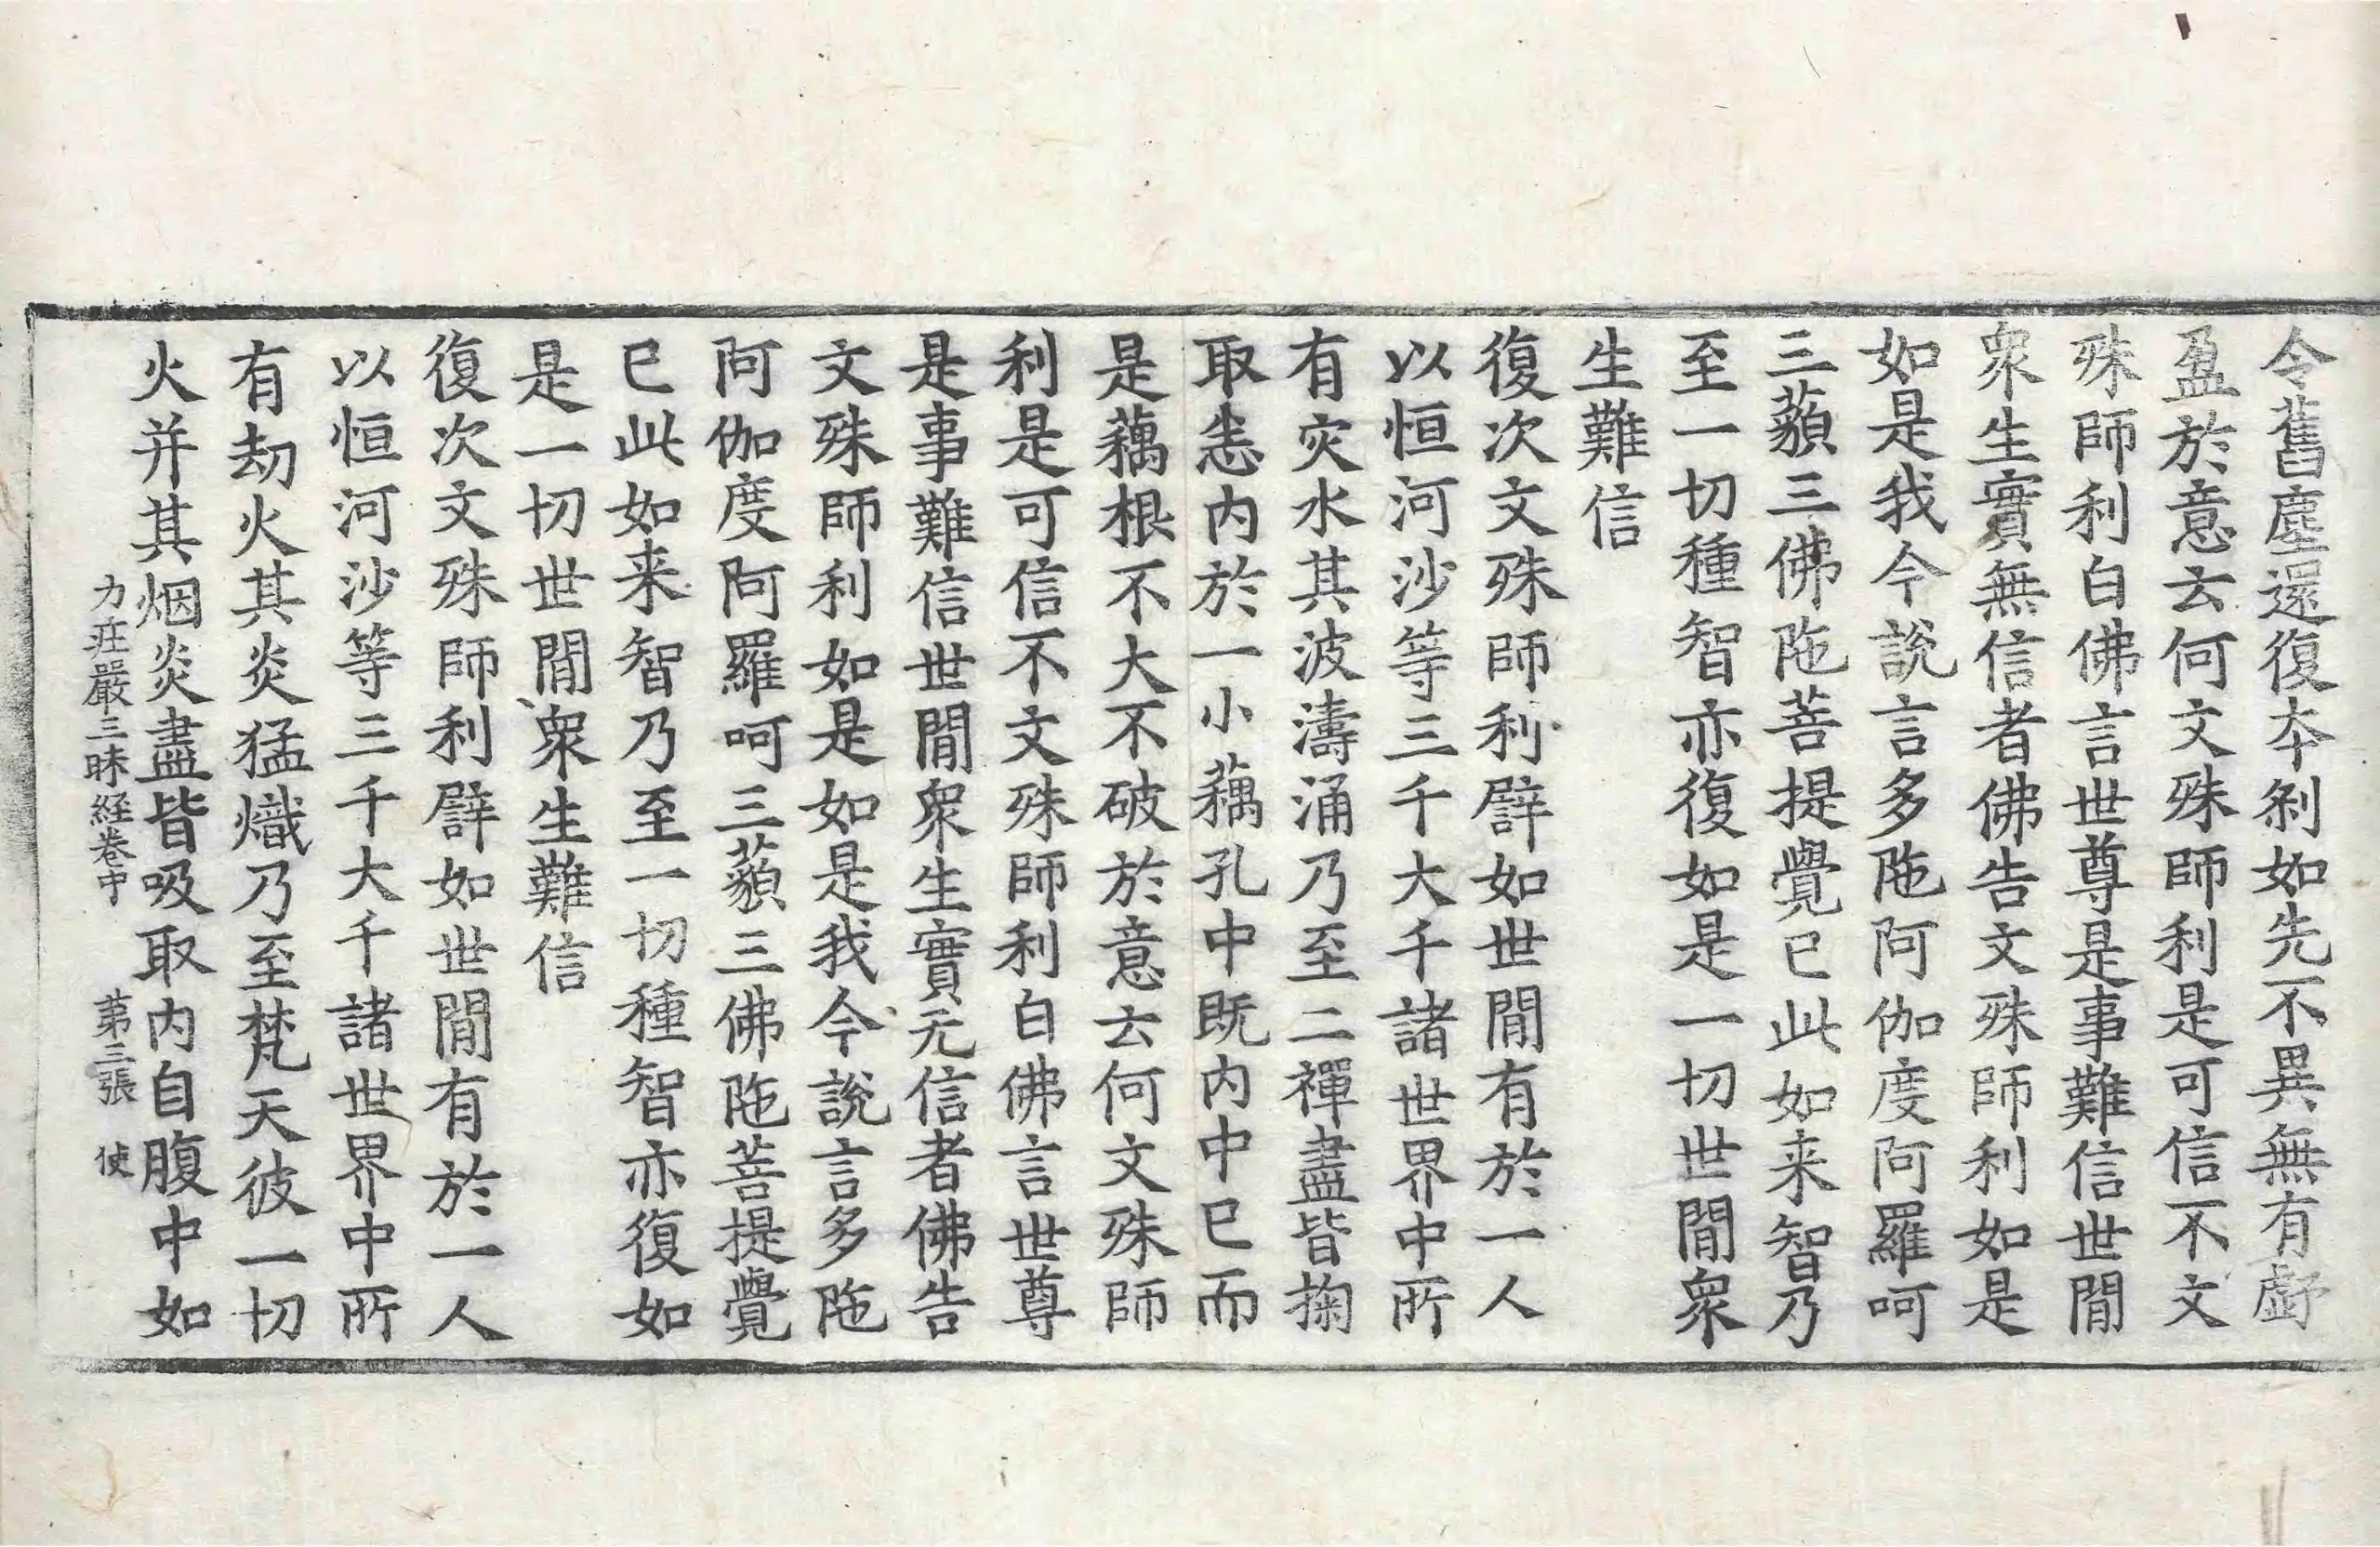 令舊塵還復本剎如先不異無有虧
盈於意云何文殊師利是可信不文
殊師利白佛言世尊是事難信世間
衆生實無信者佛告文殊師利如是
如是我今說言多陁阿伽度阿羅呵
三藐三佛陁菩提覺已此如来智乃
至一切種智亦復如是一切世間衆
生難信
復次文殊師利譬如世間有於一人
以恒河沙等三千大千諸世界中所
有灾水其波濤涌乃至二禪盡皆掬
取恙内於一小藕孔中既内中已而
是藕根不大不破於意云何文殊師
利是可信不文殊師利白佛言世尊
是事難信世間衆生實无信者佛告
文殊師利如是如是我今說言多陁
阿伽度阿羅呵三藐三佛陁菩提覺
已此如来智乃至一切種智亦復如
是一切世間衆生難信
復次文殊師利譬如世間有於一人
以恒河沙等三千大千諸世界中所
有劫火其炎猛熾乃至梵天彼一切
火并其烟炎盡皆吸取内自腹中如
力莊嚴三昧経卷中 苐三張 使